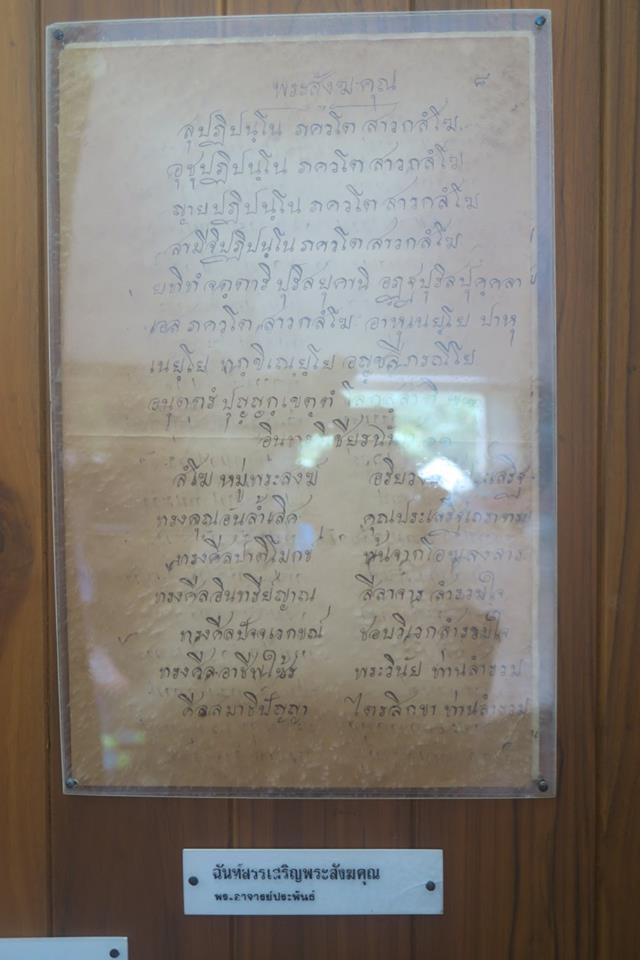 พระสังฆคุณ ๘
สุปฏิปนฺโน ภควโต สาวกสํโฆ
อุชุปฏิปนฺโน ภควโต สาวกสํโฆ
ญายปฏิปนฺโน ภควโต สาวกสํโฆ
สามีจิปฏิปนฺโน ภควโต สาวกสํโฆ
ยทิทํ จตฺตาริ ปุริสยุคานิ อฏฺฐปุริสปุคฺคลา
เอส ภควโต สาวกสํโฆ อาหุเนยฺโย ปาหุ
เนยฺโย ทกฺขิเณยฺโย อญฺชลีกรณีโย
อนุตฺตรํ ปุญฺญกฺเขตฺตํ โลกสฺสาติ
๑๑
สํโฆ หมู่พระสงฆ์
ทรงคุณอันล้ำเลิศ
ทรงศีลปาติโมกข์
ทรงศีลอินทรีย์ญาณ สีลาจาร สำรวมใจ
ทรงศีลปัจจเวกขณ์ ชอบวิเวกสำรวมใจ
ทรงศีลอาชีพ พระวินัย ท่านสำรวม
ศีลสมาธิปัญญา ไตรสิกขา ท่านสำรวม
ฉันท์สรรเสริญพระสังฆคุณ
พระอาจารย์ประพันธ์